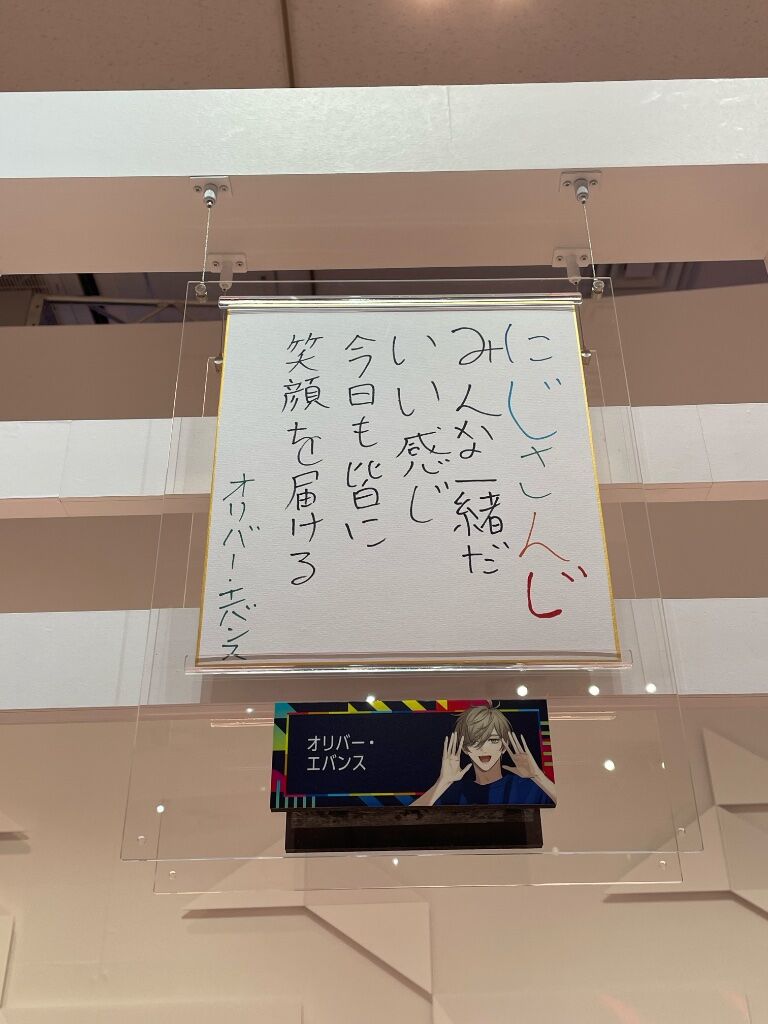 にじさんじ
みんな一緒だ
いい感じ
今日も皆に
笑顔を届ける
オリバー・エバンス
オリバー・
エバンス